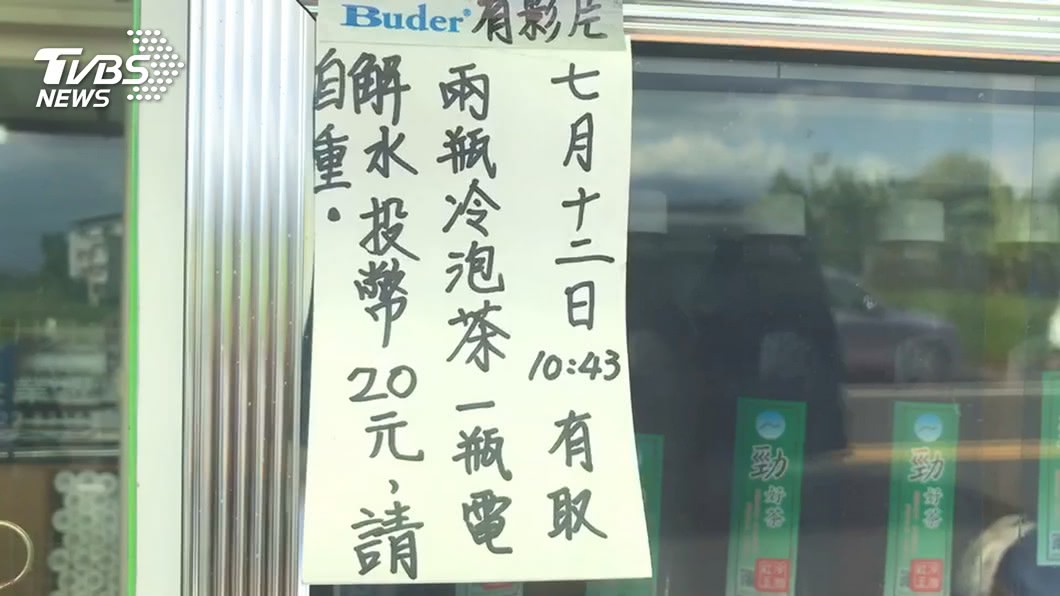 TVBS
NEWS
Buder® 有影片
七月十二日10:43有取
兩瓶冷泡茶一瓶電
解水投幣20元,請
自重.
勁
好茶
勁
好茶